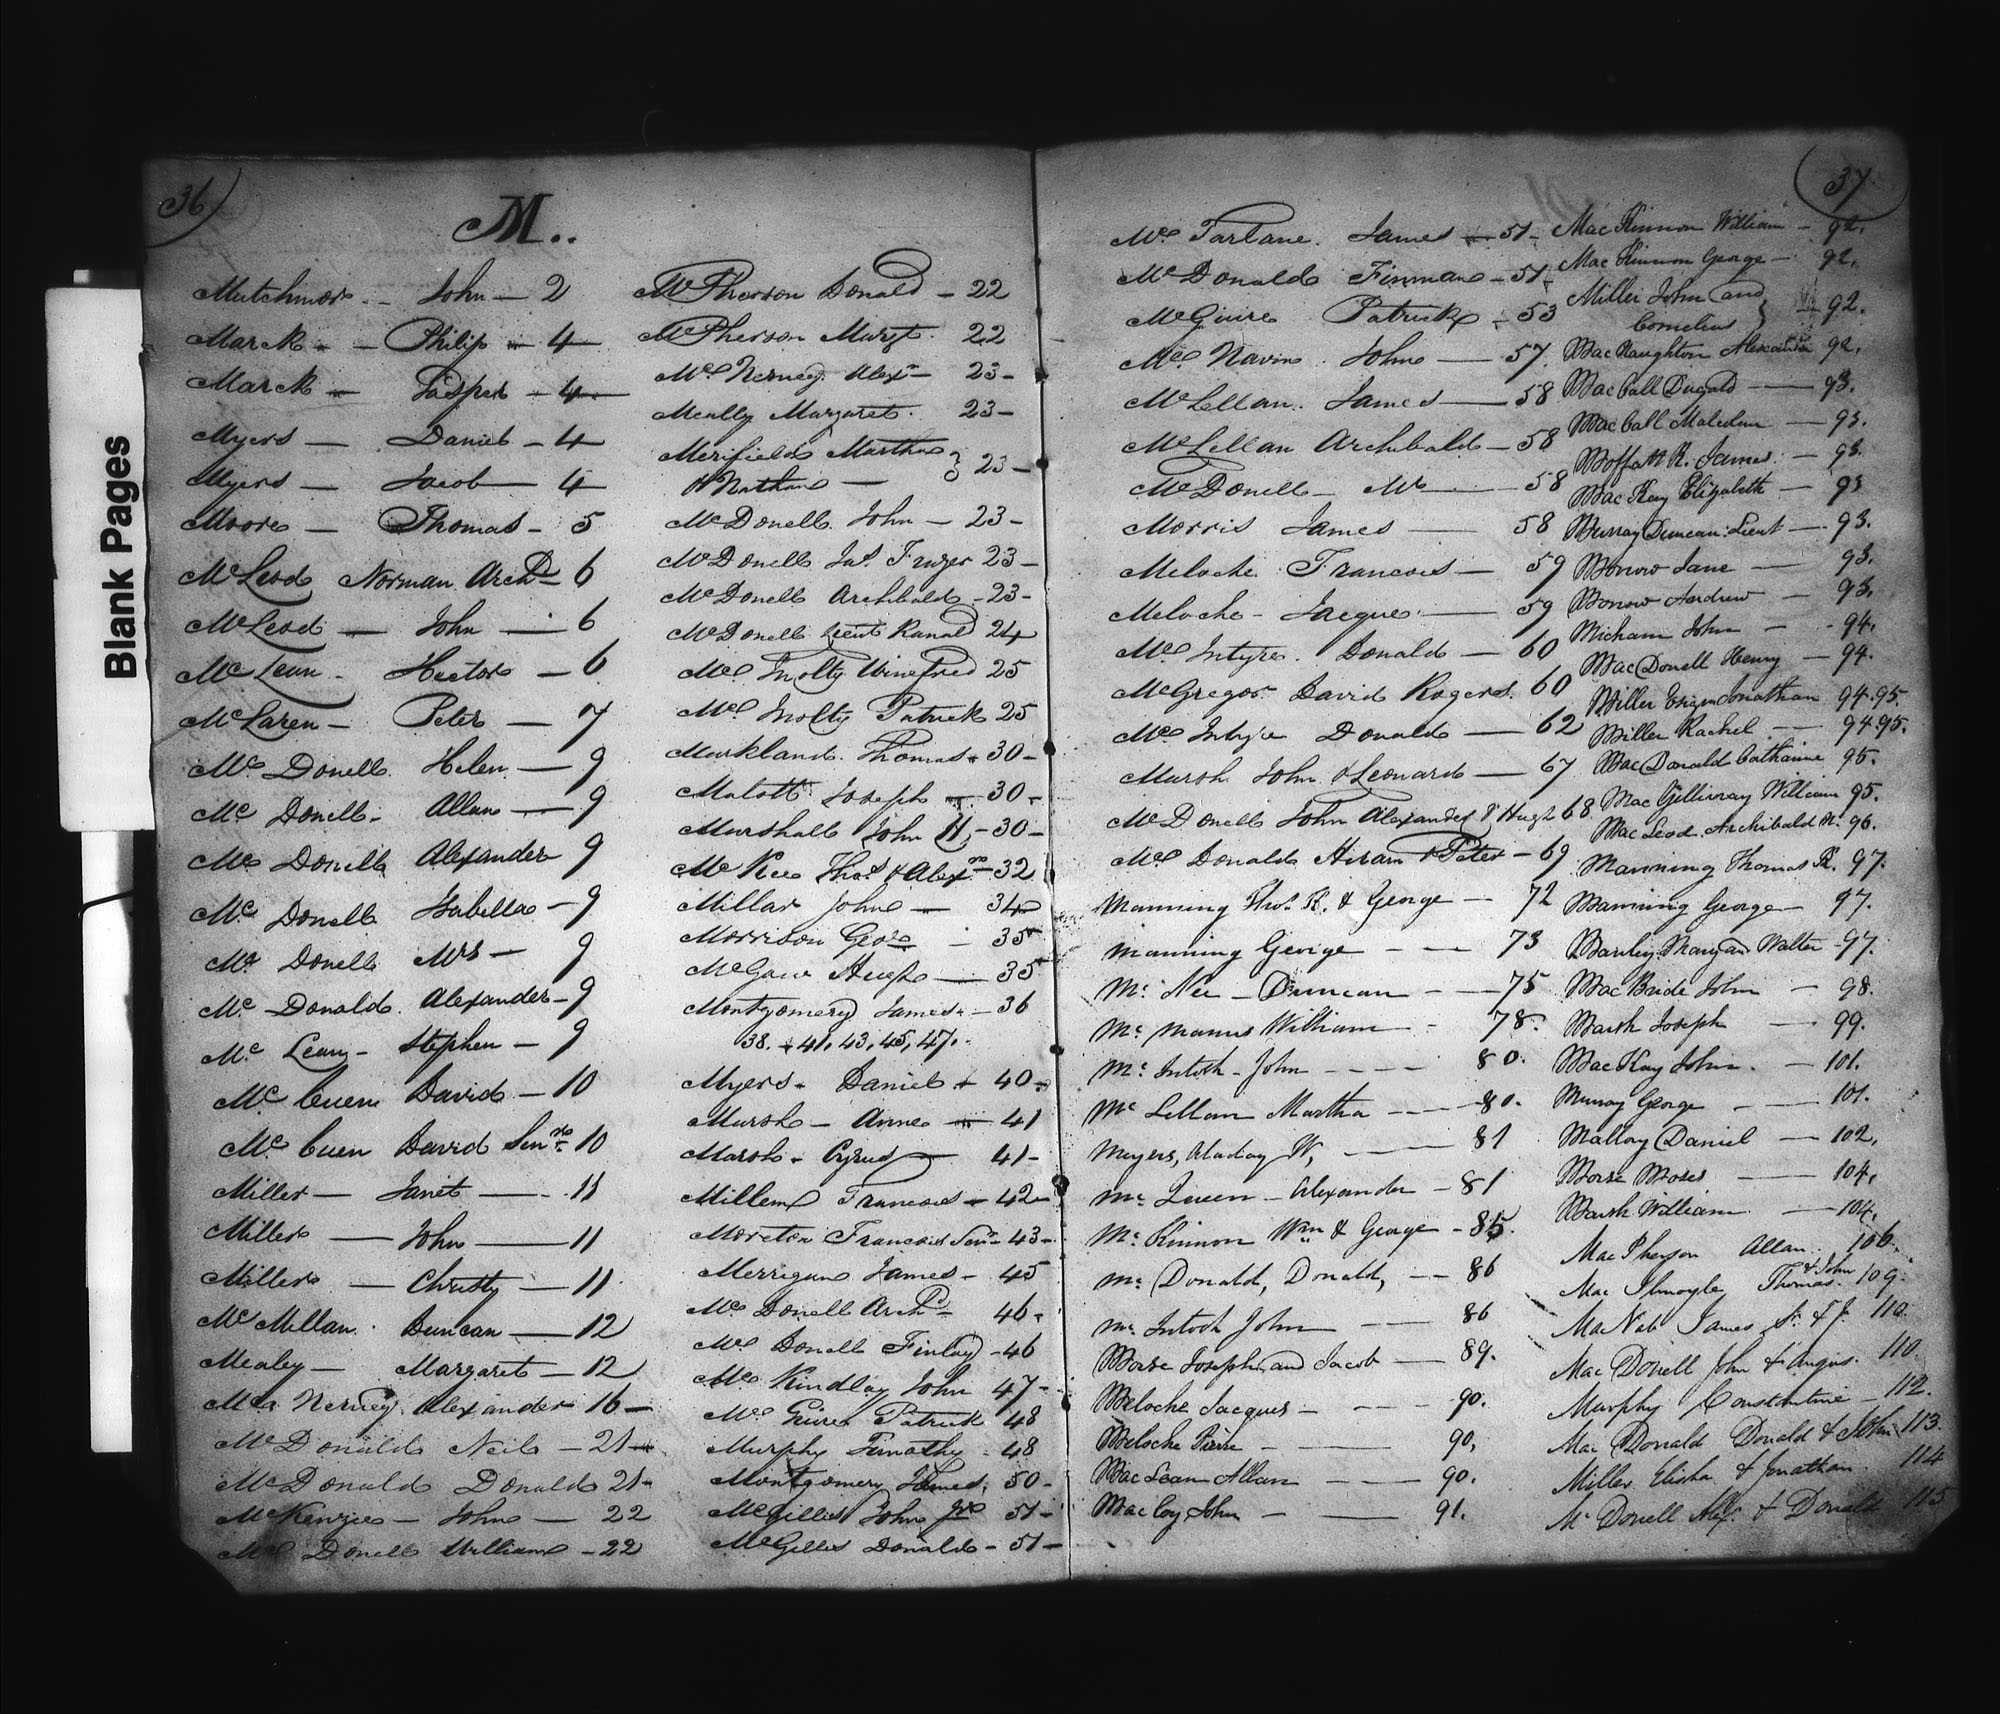 Blank Pages
36
M..
Mutchmor - John - 2
Marck - Philip - 4
Marck - Jasper - 4
Myers - Daniel - 4
Myers - Jacob - 4
Moore - Thomas - 5
McLeod Norman Archd - 6
McLeod - John - 6
McLean - Hector - 6
McLaren - Peter - 7
Mc Donell Helen - 9
Mc Donell - Allan - 9
Mc Donell Alexander 9
Mc Donell Isabella - 9
Mc Donell Mrs - 9
Mc Donald Alexander - 9
Mc Lean - Stephen - 9
Mc Cuen David - 10
Mc Cuen David Senr 10
Miller - Janet - 11
Miller - John - 11
Miller - Christy - 11
McMillan Duncan - 12
Mealey - Margaret - 12
Nerney Alexander 16 -
McDonald Neil - 21 -
McDonald Donald 21 -
McKenzie - John - 22
Mc Donell William - 22
McPherson Donald - 22
McPherson Margt. 22
McNerney Alexr - 23 -
Meally Margaret. 23 -
Merifield Martha } 23 -
& Nathan -
McDonell John - 23 -
McDonell Jas. Frazer 23 -
McDonell Archibald - 23 -
McDonell Lieut Ranald 24
Mc Nolty Winefred 25
Mc Nolty Patrick 25
Markland Thomas - 30 -
Malott Joseph - 30 -
Marshall John H. - 30 -
McKee Thos. & Alexr - 32
Millar John - 34
Morrison Geo - 35
McGaw Hugh - 35
Montgomery James - 36
38. 41, 43, 45, 47.
Myers - Daniel - 40
Marsh - Anne - 41
Marsh - Cyrus - 41 -
Millem Francois - 42 -
Moreton Francois Senr - 43 -
Merrigan James - 45
Mc Donell Archd - 46 -
Mc Donell Finlay - 46
Mc Kindlay John 47 -
Mc Guire Patrick 48
Murphy Timothy - 48
Montgomery James, 50 -
McGillis John 51 -
McGillis Donald - 51 -
37
Mc Farlane. James - 51 -
McDonald Finnan - 51 -
McGuire Patrick - 53
Mc Navin John - 57
McLellan. James - 58
McLellan Archibald - 58
McDonell - Mr - 58
Morris James - 58
Meloche Francois - 59
Meloche - Jacque - 59
Mc Intyre. Donald - 60
McGregor David Rogers. 60
Mc Intyre Donald - 62
Marsh John & Leonard - 67
McDonell John Alexander & Hugh 68
Mc Donald Hiram & Peter - 69
Manning Thos. K. & George - 72
Manning George - - - 73
Mc Nee - Duncan - - 75
Mc Manus William - 78
Mc Intosh - John - - - - 80.
Mc Lellan Martha - - - 80.
Meyers, W, - - 81
Mc Queen - Alexander - 81
Mc Kinnon Wm & George - 85.
Mc Donald, Donald, - - 86
Mc Intosh John - - 86
Morse Joseph and Jacob - 89.
Meloche Jacques - - - 90.
Meloche Pierre - - - 90,
MacLean Allan - - 90.
MacCoy John - - 91.
MacKinnon William - 92.
MacKinnon George - 92.
Miller John and } 92.
Cornelius
MacNaughton Alexander 92.
MacCall Dugald - 93.
MacCall Malcolm - 93.
Moffatt R. James - 93.
MacKay Elizabeth - 93
Murray Duncan Lieut - 93.
Morrow Jane - 93.
Morrow Andrew - 93.
Micham John - - 94.
MacDonell Henry - 94.
Miller Jonathan 94.95.
Miller Rachel - 94.95.
MacDonald Catharine 95.
Mac Gillivray William 95.
MacLeod Archibald N. 96.
Manning Thomas K. 97.
Manning George - 97.
Walter - 97.
MacBride John - 98.
Marsh Joseph - 99.
MacKay John. - 101.
Murray George - 101.
Mallory Daniel - 102,
Morse Moses - 104,
Marsh William - 104,
MacPherson Allan. 106.
& John
Mac Thomas. 109.
MacNab James Sr. & Jr. 110.
Mac Donell John & Angus. 110.
Murphy Constantine - 112.
Mac Donald Donald & John 113.
Miller Elisha & Jonathan. 114
Mc Donell Alex. & Donald 115